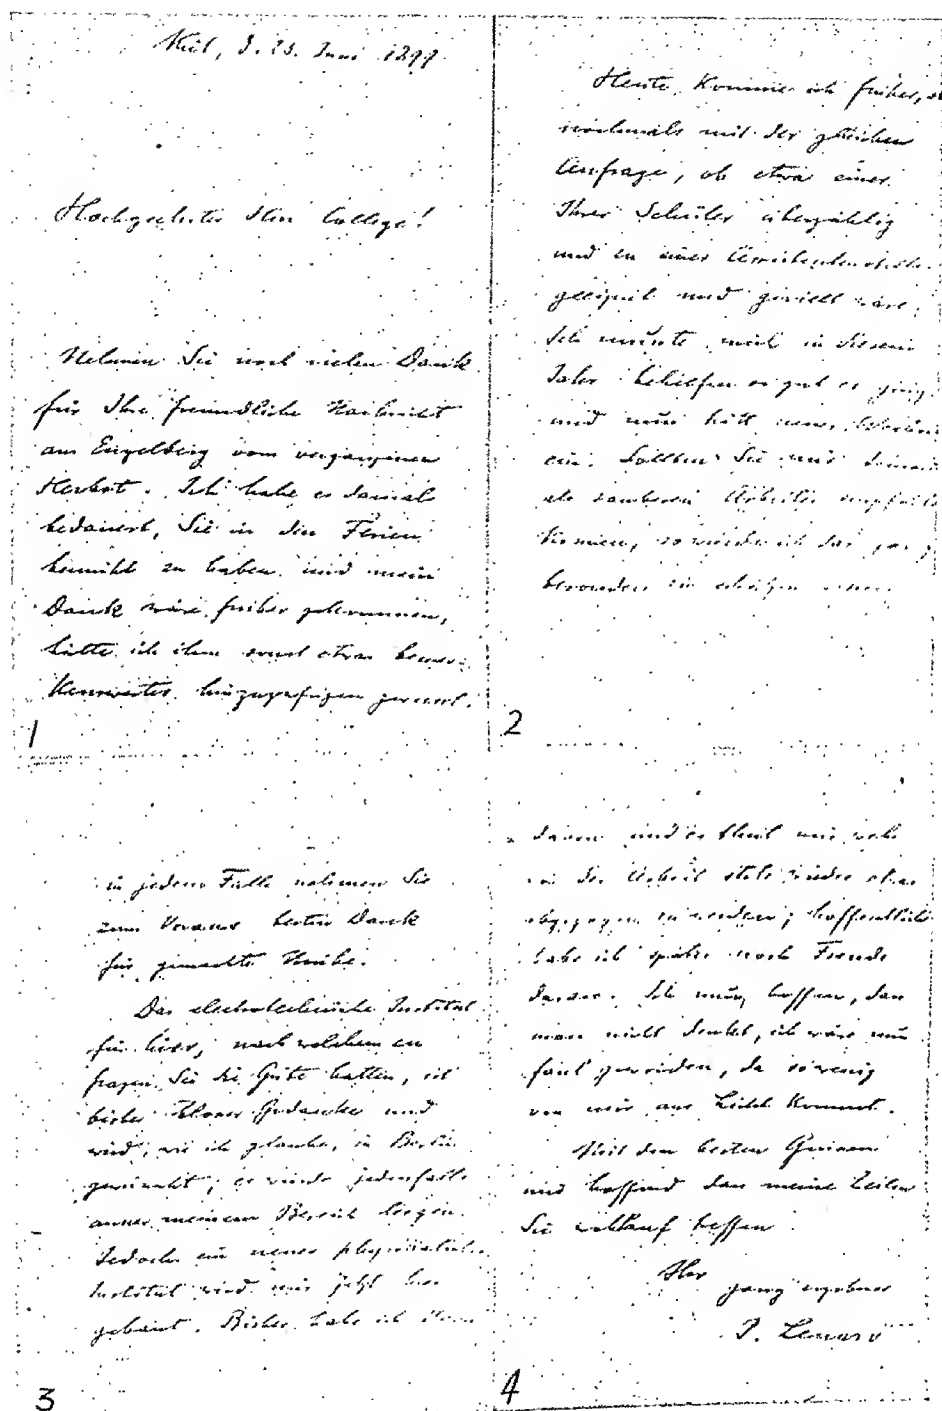 Kiel, d. 23. Juni 1899.
Hochgeehrter Herr College!
Nehmen Sie noch vielen Dank
für Ihre freundliche Nachricht
aus Engelberg vom vergangenen
Herbst. Ich habe es damals
bedauert, Sie in den Ferien
bemüht zu haben und mein
Dank wäre früher gekommen,
hätte ich ihm sonst etwas bemer-
kenswertes hinzuzufügen gewusst.
1
Heute komme ich
nochmals mit der gleichen
Anfrage, ob etwa einer
Ihrer Schüler überzählig
und zu einer
geeignet und gewillt wäre.
Ich musste mich in diesem
Jahr behelfen so gut es ging
und nun
ein. Sollten Sie mir
als sauberen Arbeiter
können, so würde ich das
besonders zu schätzen
2
in jedem Falle nehmen Sie
zum Voraus besten Dank
für gemachte Mühe.
Das electrotechnische Institut
für hier, nach welchem zu
fragen Sie die Güte hatten, ist
bisher blosser Gedanke und
wird, wie ich glaube, in Berlin
gewünscht; es würde jedenfalls
ausser meinem Bereich liegen.
Jedoch ein neues physikalisches
Institut wird mir jetzt hier
gebaut. Bisher habe ich
3
davon und es thut mir weh
in der Arbeit stets wieder
abgezogen zu werden; hoffentlich
habe ich später noch Freude
daran. Ich muss hoffen, dass
man nicht denkt, ich wäre nun
faul geworden, da so wenig
von mir ans Licht kommt.
Mit den besten Grüssen
und hoffend dass meine Zeilen
Sie wohlauf treffen
Ihr
ganz ergebener
P. Lenard
4